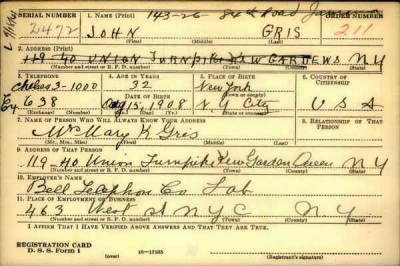 SERIAL NUMBER 1. NAME (Print) 143-26 - 84th Road ORDER NUMBER
2472 JOHN GRIS 211
(First) (Middle) (Last)
2. ADDRESS (Print)
119-40 UNION TURNPIKE KEW GARDENS N Y
(Number and street or R. F. D. number) (Town) (County) (State)
3. TELEPHONE 4. AGE IN YEARS 5. PLACE OF BIRTH 6. COUNTRY OF CITIZENSHIP
Chelsea 3-1000 32 New York
DATE OF BIRTH (Town or county)
Ex 638 Aug 15, 1908 N Y City U S A
(Exchange) (Number) (Mo.) (Day) (Yr.) (State or country)
7. NAME OF PERSON WHO WILL ALWAYS KNOW YOUR ADDRESS 8. RELATIONSHIP OF THAT PERSON
Mrs Mary K Gris
(Mr., Mrs., Miss) (First) (Middle) (Last)
9. ADDRESS OF THAT PERSON
119-40 Union Turnpike Kew Gardens Queens N Y
(Number and street or R. F. D. number) (Town) (County) (State)
10. EMPLOYER'S NAME
Bell Telephone Co Lab
11. PLACE OF EMPLOYMENT OR BUSINESS
463 West St N Y C N Y
(Number and street or R. F. D. number) (Town) (County) (State)
I AFFIRM THAT I HAVE VERIFIED ABOVE ANSWERS AND THAT THEY ARE TRUE.
REGISTRATION CARD
D. S. S. Form 1 16-17105 (Registrant's signature)